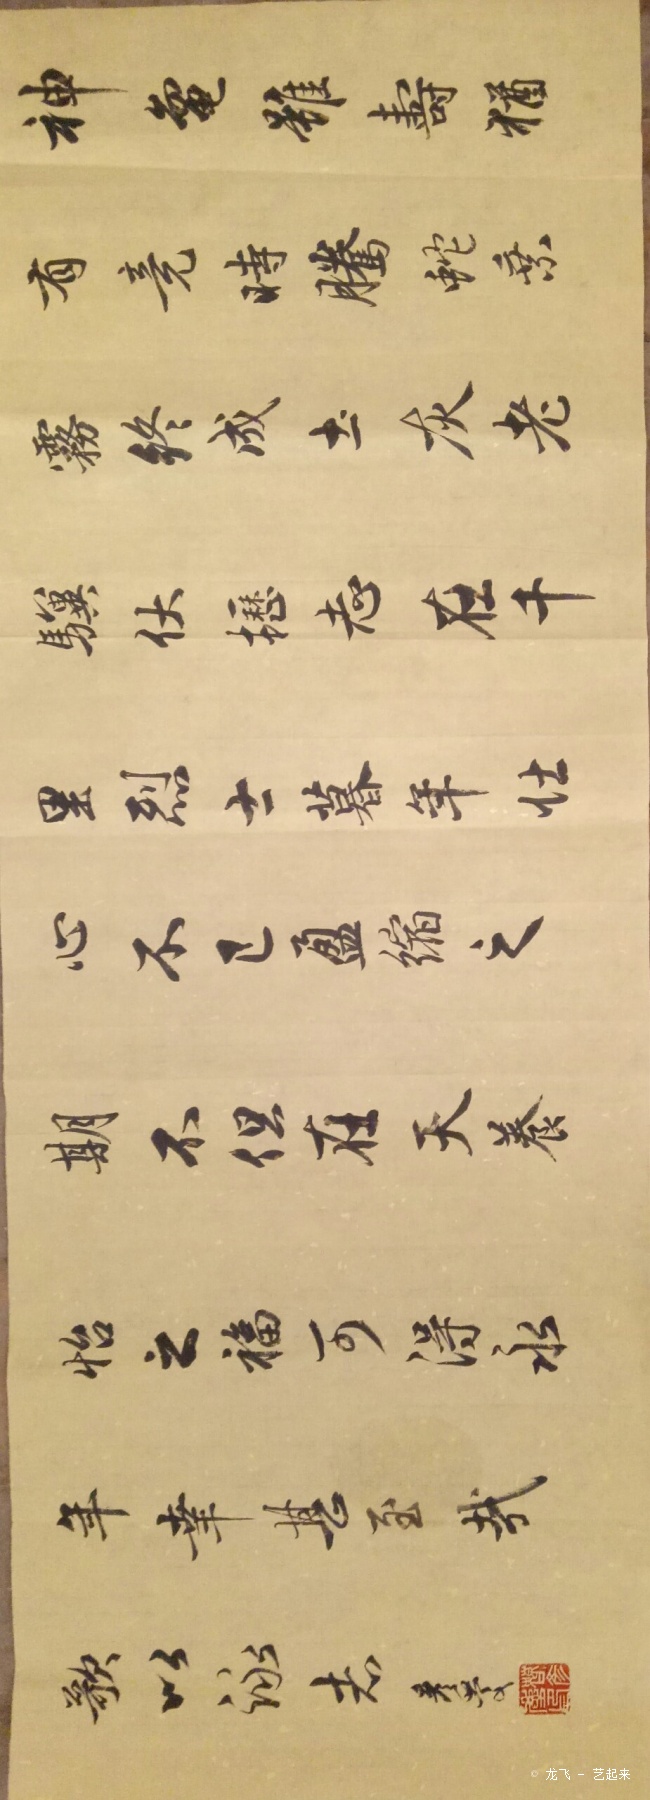 神龜雖壽猶
有竟時騰蛇乘
霧終成土灰老
驥伏櫪志在千
里烈士暮年仕
心不已盈縮之
期不但在天養
怡之福可得永
年幸甚至哉
歌以詠志
© 龙飞 - 艺起来